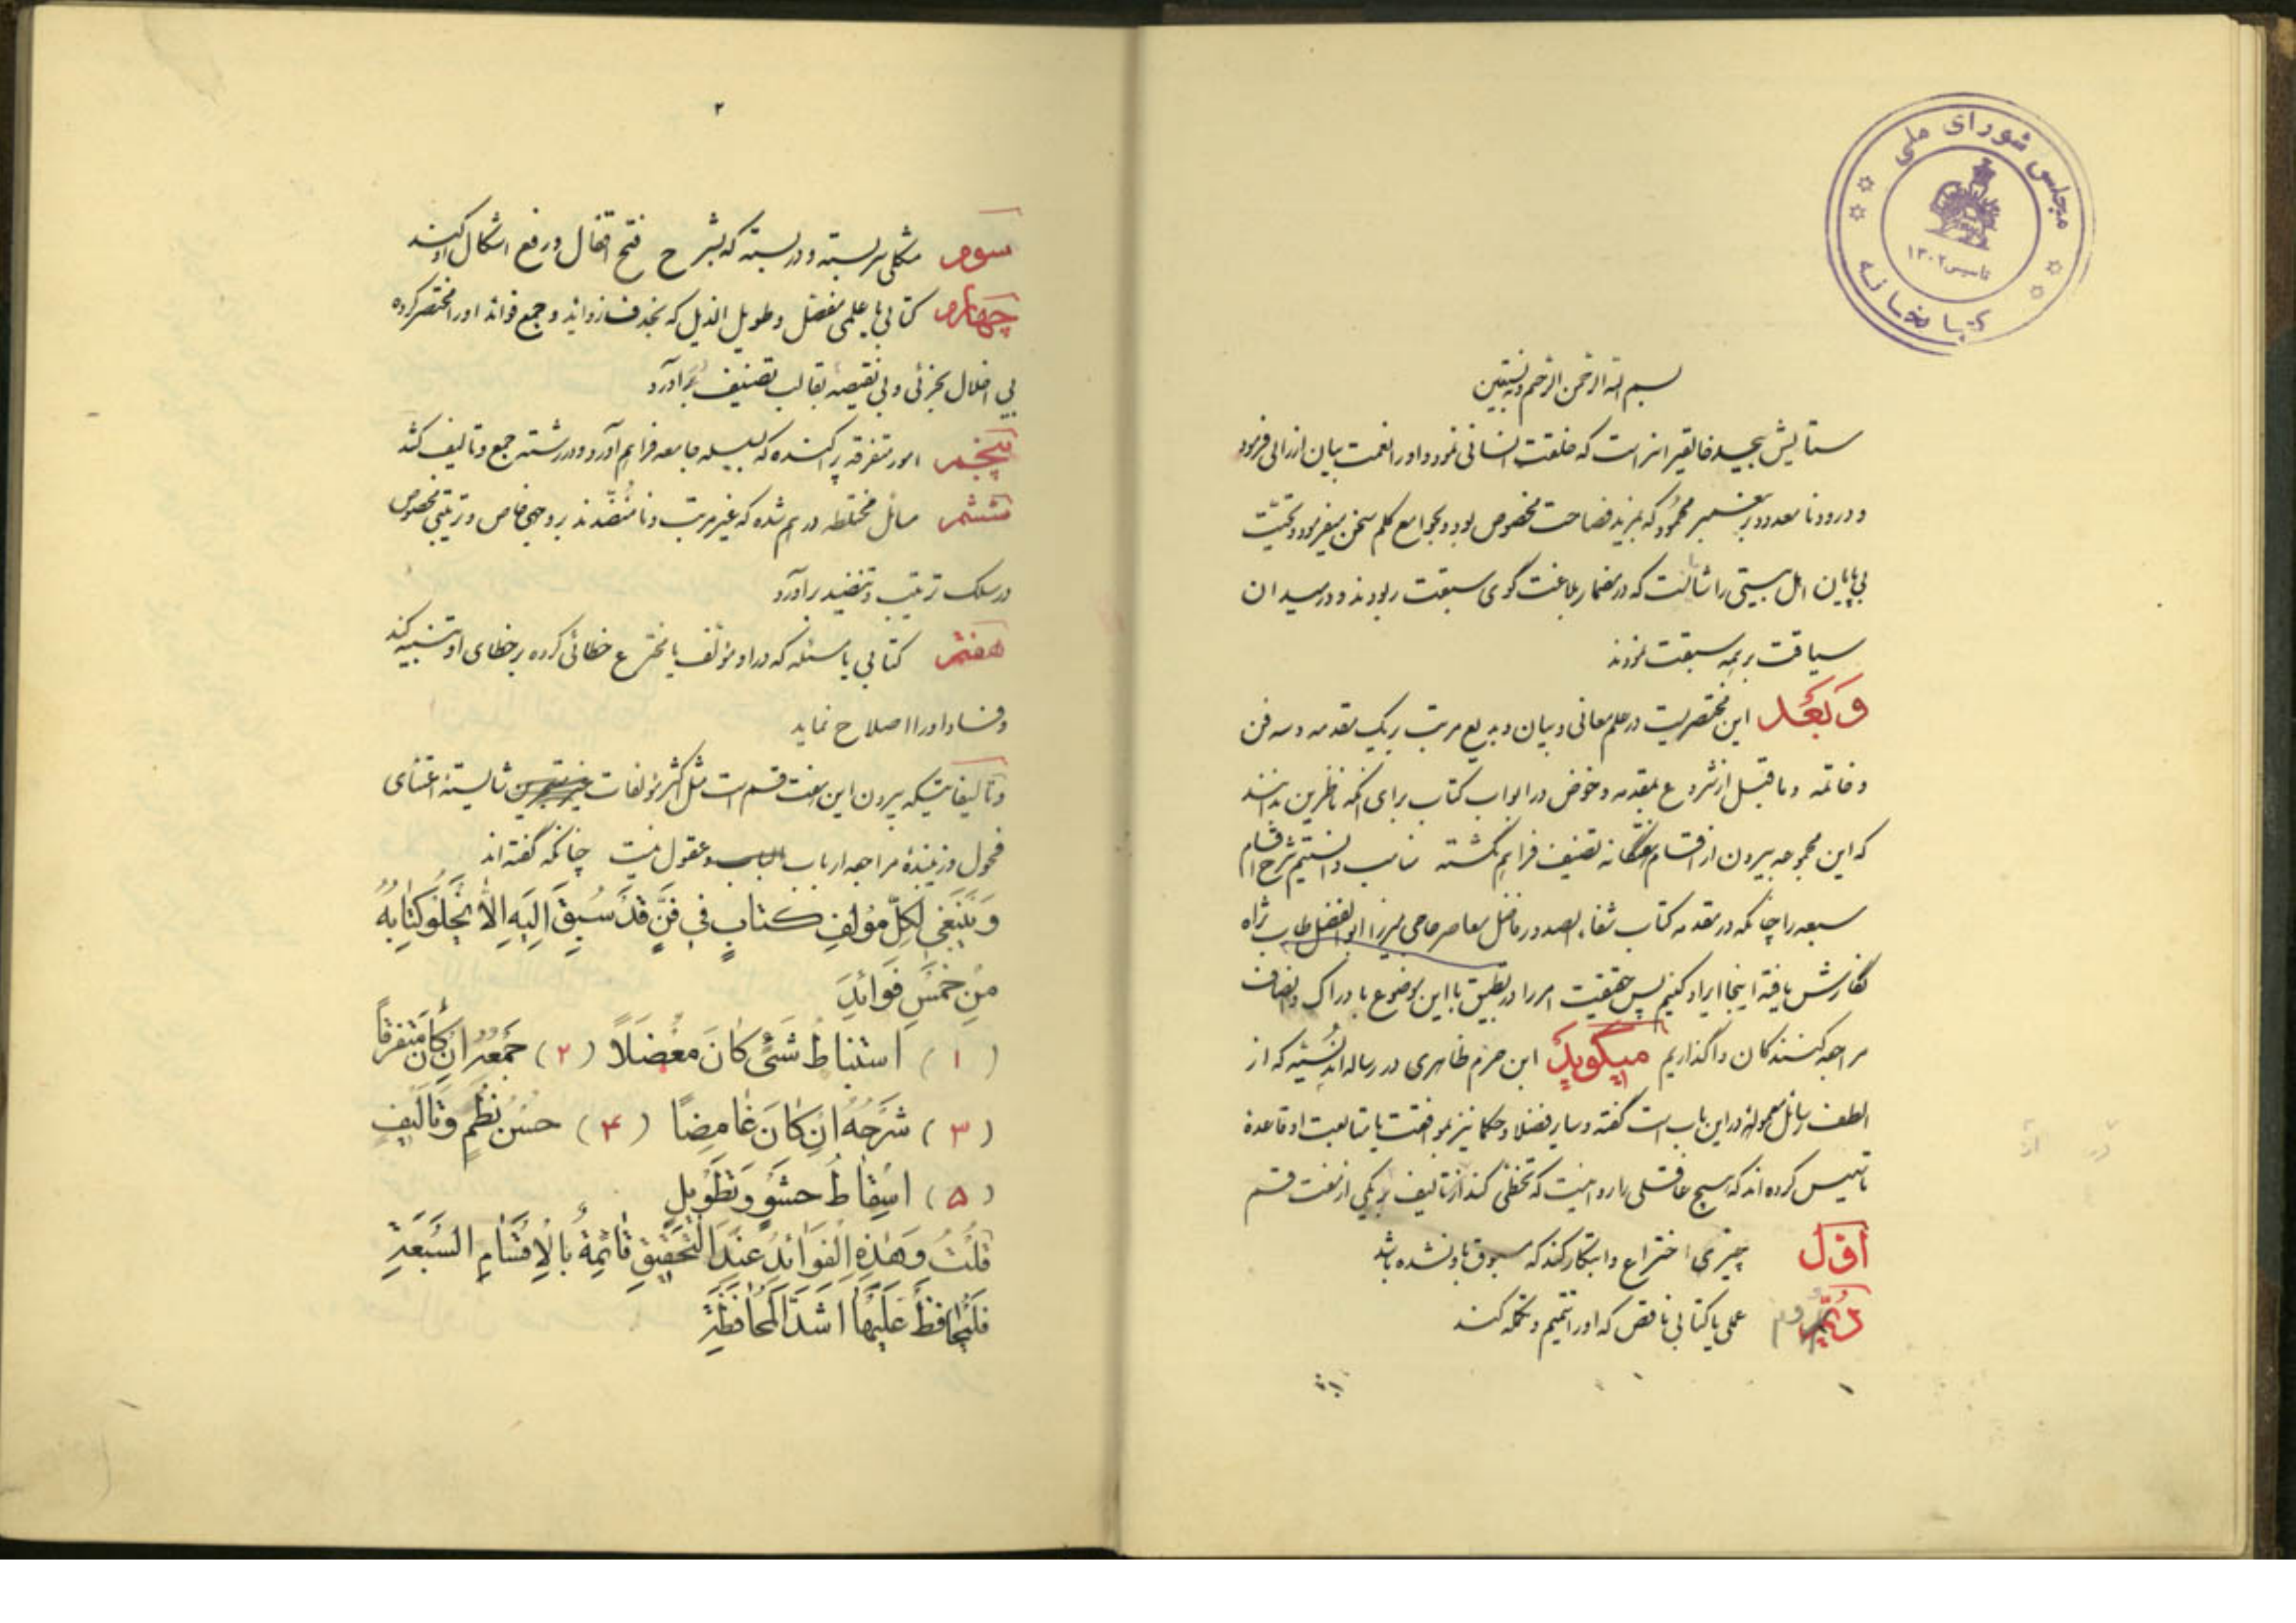 مجلس شورای ملی
تاسیس ۱۳۰۲
کتابخانه
بسم الله الرحمن الرحیم وبه نستعین
ستایش بیحد خالقی را سزاست که خلقت انسانی نمود و او را نعمت بیان ارزانی فرمود
و درود نامعدود بر پیغمبر محمود که بمزید فصاحت مخصوص بود و بجوامع کلم سخن میفرمود و تحیّت
بی پایان اهل بیتی را شاست که در مضمار بلاغت گوی سبقت ربودند و در میدان
سیاقت بر همه سبقت نمودند
وَبَعد این مختصریست در علم معانی و بیان و بدیع مرتب بر یک مقدمه و سه فن
و خاتمه و ما قبل از شروع بمقدمه و خوض در ابواب کتاب برای آنکه ناظرین بدانند
که این مجموعه بیرون از اقسام هفتگانه تصنیف فراهم نگشته مناسب دانستیم شرح اقسام
سبعه را چنانکه در مقدمه کتاب شفاء الصدور فاضل معاصر حاجی میرزا ابوالفضل طاب ثراه
نگارش یافته اینجا ایراد کنیم پس حقیقت امر را در تطبیق با این موضوع بادراک و انصاف
مراجعه کنندکان واگذاریم میگوید ابن حزم ظاهری در رساله اندلسیه که از
الطف رسائل معموله در این باب است گفته و سایر فضلا و حکما نیز بموافقت یا متابعت او قاعدهٔ
تاسیس کرده اند که هیچ عاقلی را روا نیست که تخطی کند از تالیف بر یکی از هفت قسم
اوّل چیزی اختراع و ابتکار کند که مسبوق باو نشده باشد
دویم علمی یا کتابی ناقص که او را تتمیم و تکمله کند
۲
سوم مشکلی سربسته و دربسته که بشرح فتح اقفال و رفع اشکال او کند
چهارم کتابی یا علمی مفصل و طویل الذیل که بحذف زوائد و جمع فوائد او را مختصر کرده
بی اخلال بجزئی و بی نقیصه بقالب تصنیف برآورد
پنجم امور متفرقه پراکنده که بسلسله جامعه فراهم آورد و در رشته جمع و تالیف کشد
ششم مسائل مختلطه درهم شده که غیر مرتب و نامنضّدند بر وجهی خاص و ترتیبی مخصوص
در سلک ترتیب و تنضید برآورد
هفتم کتابی یا مسئله که در او مؤلف یا مخترع خطائی کرده بر خطای او تنبیه کند
و فساد او را اصلاح نماید
و تألیفاتیکه بیرون این هفت قسم است مثل اکثر مؤلفات شایستهٔ اعتنای
فحول و زیبندهٔ مراجعه ارباب الباب و عقول نیست چنانکه گفته اند
وَیَنبَغی لِکُلِّ مؤلفِ کتابٍ فی فنٍّ قَد سُبِقَ اِلَیهِ اَلاّ یَخلُوَ کِتابُهُ
مِن خمسِ فَوائِدَ
(۱) اِستنباطُ شَیئٍ کانَ معُضَلاً (۲) جَمعُهُ اِن کانَ مُتَفرقاً
(۳) شَرحُهُ اِن کانَ غامِضًا (۴) حُسنُ نَظمٍ وَتالیفٍ
(۵) اِسقاطُ حشوٍ وَتَطویلٍ
قلتُ وَهذِهِ الفَوائِدُ عِندَ التَّحقیقِ قائِمةٌ بِالاَقسامِ السَّبعَةِ
فَلیُحافَظ عَلَیها اَشَدَّ المُحافَظَةِ